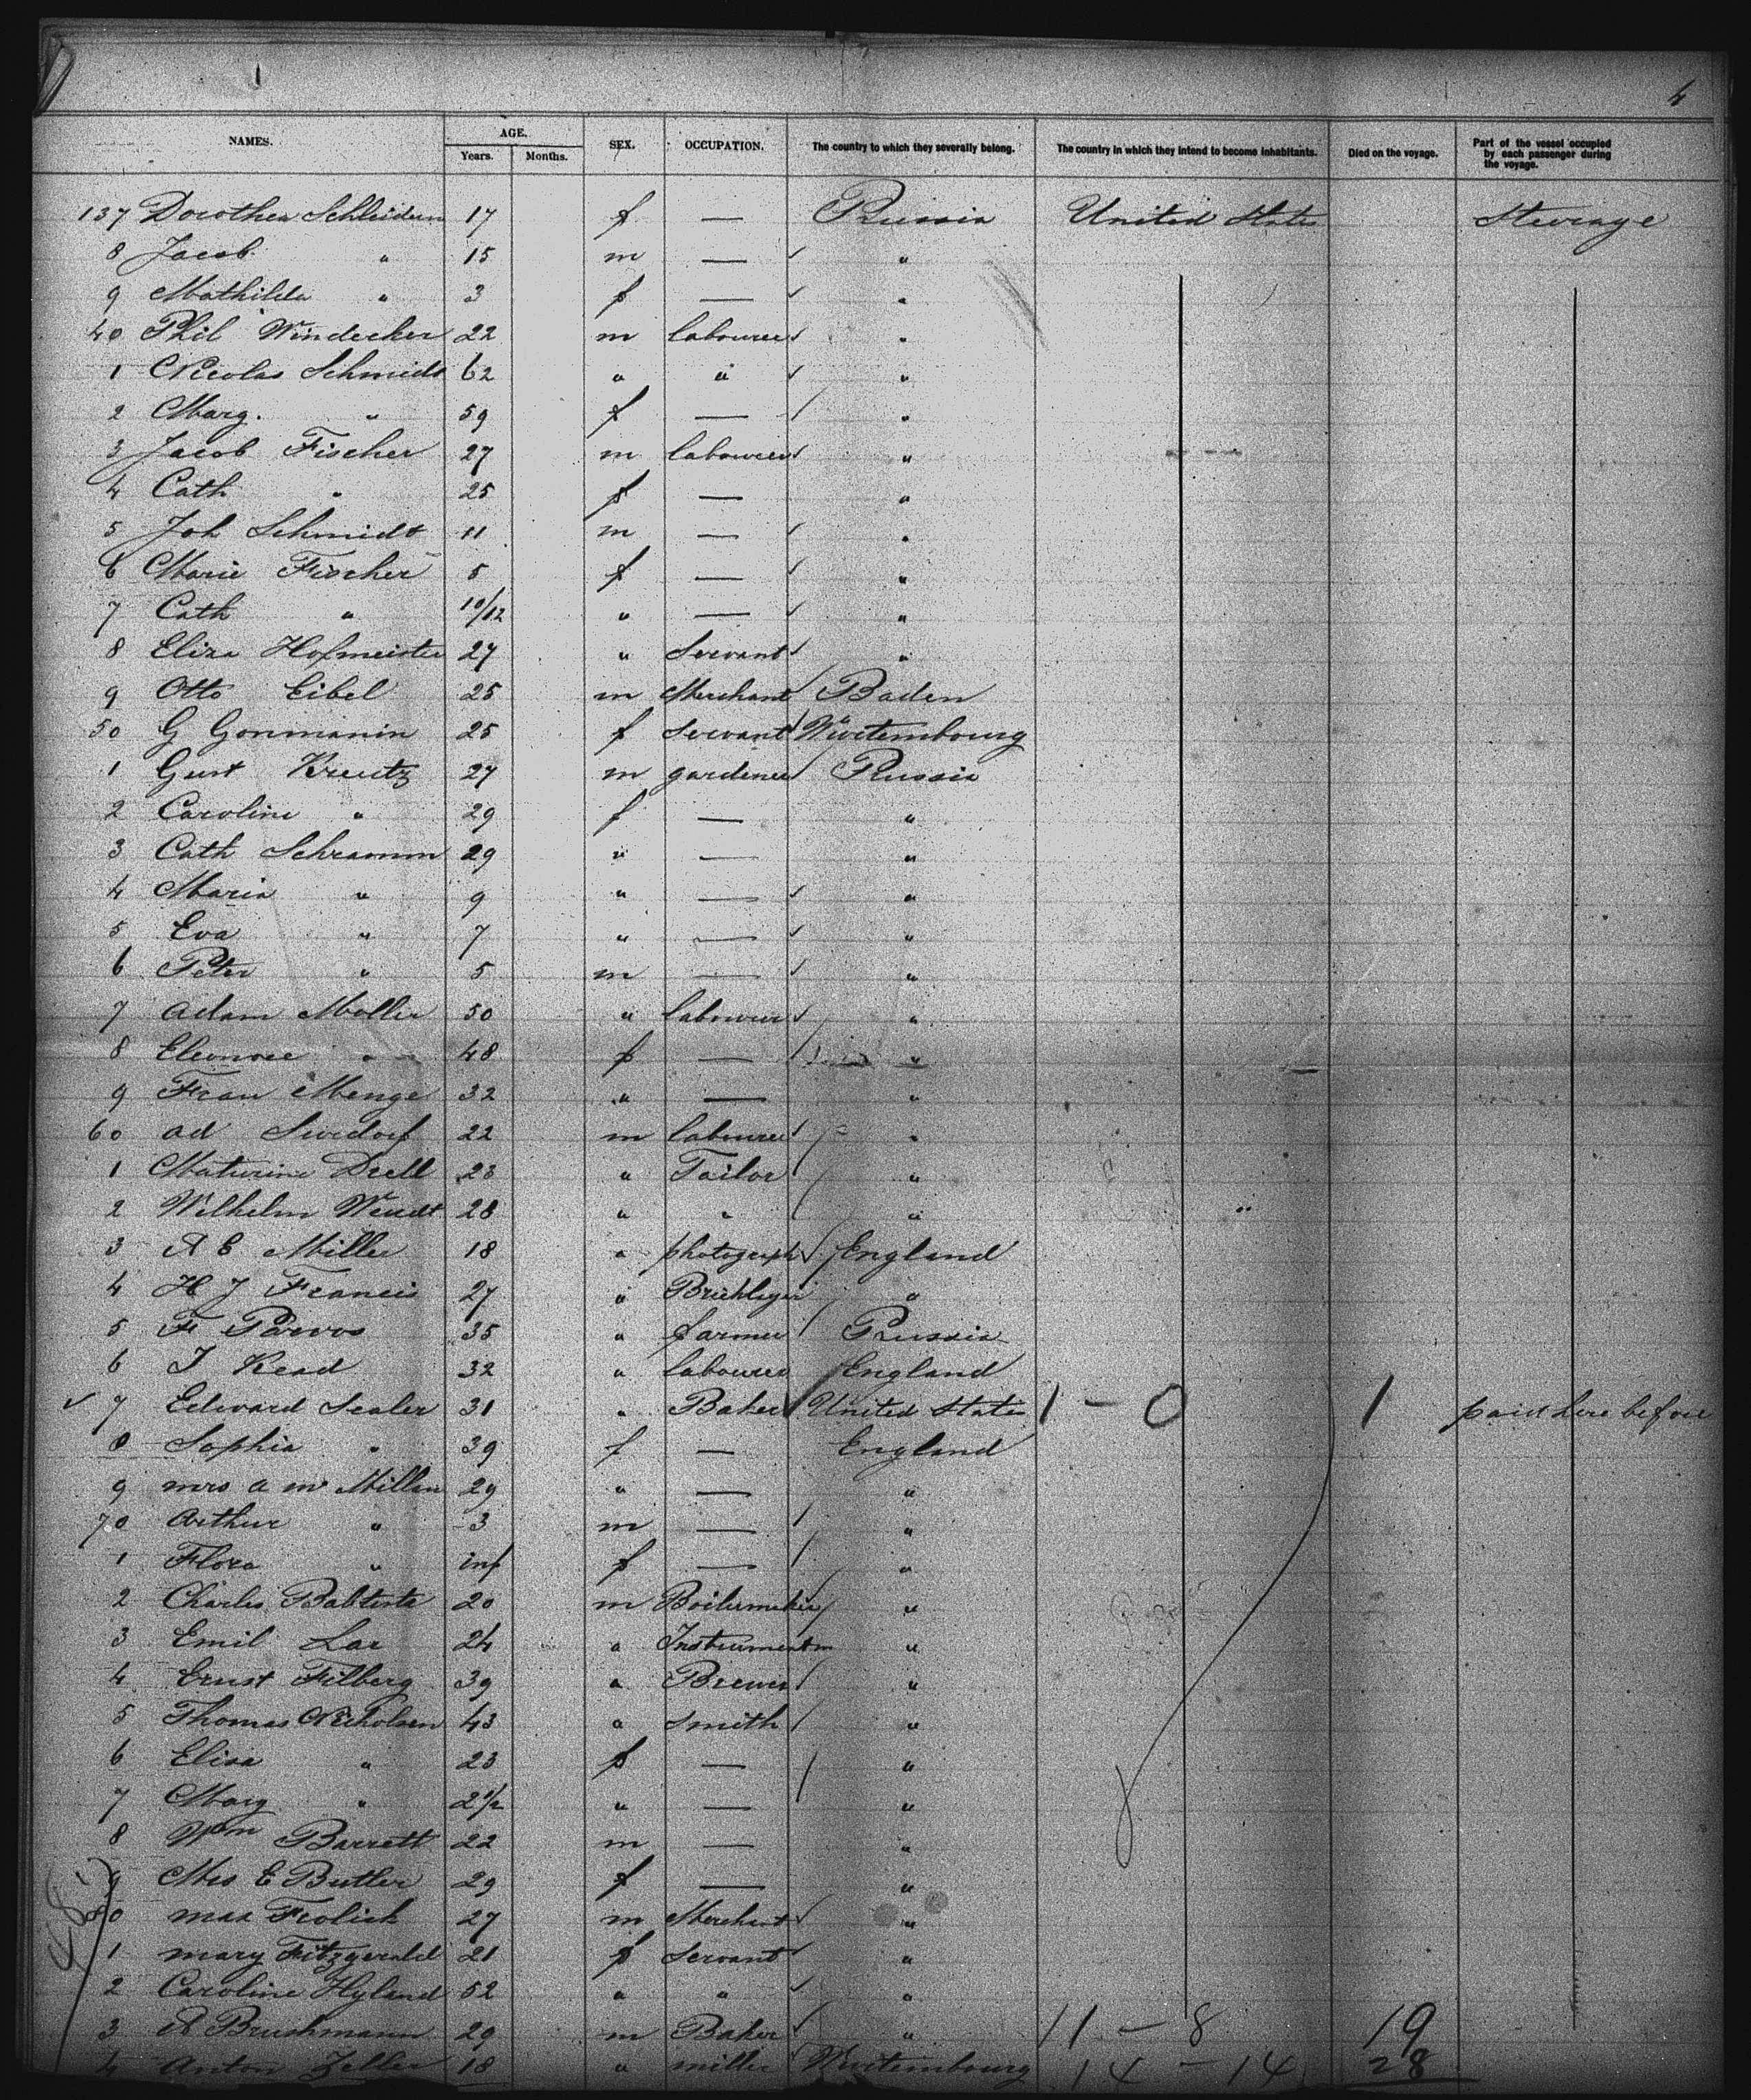 4
NAMES. AGE. SEX. OCCUPATION. The country to which they severally belong. The country in which they intend to become inhabitants. Died on the voyage. Part of the vessel occupied by each passenger during the voyage.
Years. Months.
137 Dorothea 17 f — United States Steerage
8 Jacob " 15 m — "
9 Mathilda " 3 f — "
40 Phil Windecker 22 m labourer "
1 Nicolas Schmidt 62 " " "
2 Marg. " 59 f — "
3 Jacob Fischer 27 m labourer "
4 Cath " 25 f — "
5 Joh Schmidt 11 m — "
6 Marie Fischer 5 f — "
7 Cath " 10/12 " — "
8 Eliza Hofmeister 27 " Servant "
9 Otto Eibel 25 m Merchant Baden
50 G Gonmanin 25 f Servant Wurtembourg
1 Gust Kreutz 27 m gardener
2 Caroline " 29 f — "
3 Cath Schramm 29 " — "
4 Maria " 9 " — "
5 Eva " 7 " — "
6 Peter " 5 m — "
7 Adam Moller 50 " labourer "
8 Eleonore " 48 f — "
9 Frau Menge 32 " — "
60 Ad 22 m labourer "
1 Drell 23 " Tailor "
2 Wilhelm Wendt 28 " " "
3 A E Miller 18 " photograph England
4 H J Francis 27 " "
5 F 35 " farmer Prussia
6 J Read 32 " labourer England
7 Edward Sealer 31 " Baker United States 1 – 0 1 paid here before
8 Sophia " 39 f — England
9 mrs a m Millen 29 " — "
70 Arthur " 3 m — "
1 Flora " inf f — "
2 Charles Babtiste 20 m Boilermaker "
3 Emil 24 " Instrumentm "
4 Ernst Filberg 39 " Brewer "
5 Thomas Nicholsen 43 " Smith "
6 Elisa " 23 f — "
7 Marg " 2 1/2 " — "
8 Wm Barrett 22 m — "
9 Mrs E Butler 29 f — "
80 max Frolich 27 m Merchant "
1 mary Fitzgerald 21 f Servant "
2 Caroline Hyland 52 " " "
3 A Brushmann 29 m Baker " 11 – 8 19
4 Anton Zeller 18 " miller Wurtembourg 14 – 14 28